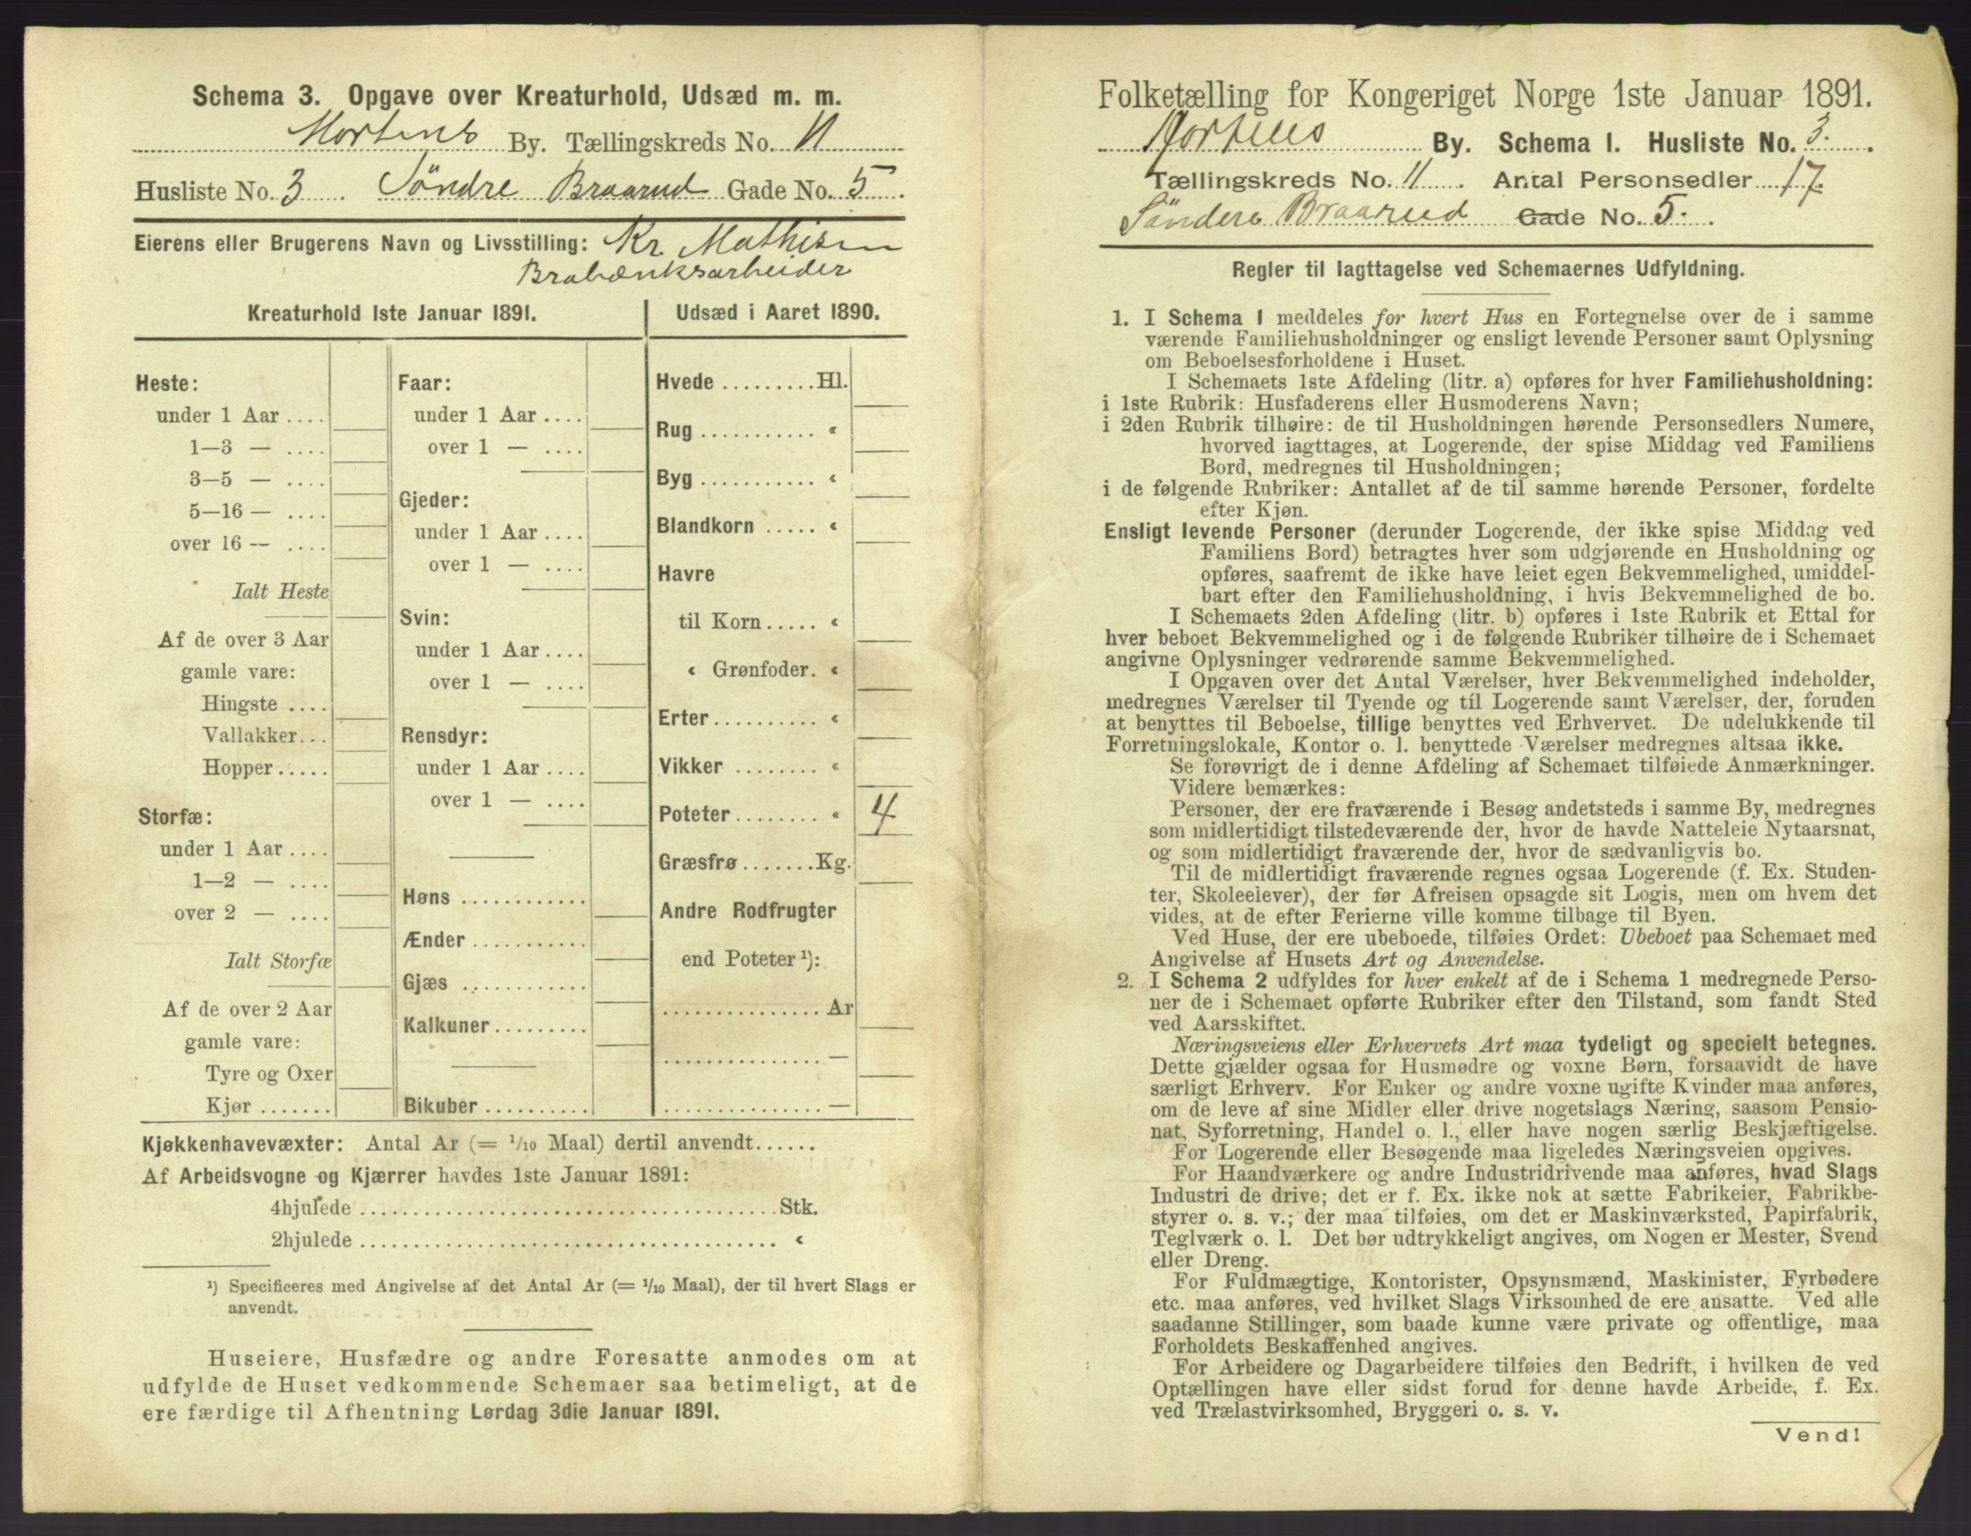 Schema 3. Opgave over Kreaturhold, Udsæd m. m.
Hortens By. Tællingskreds No. 11
Husliste No. 3. Søndre Braarud Gade No. 5.
Eierens eller Brugerens Navn og Livsstilling: Kr. Mathisen
Brobænksarbeider
Kreaturhold 1ste Januar 1891.
Heste:
under 1 Aar ....
1—3 — ....
3—5 — ....
5—16 — ....
over 16 — ....
Ialt Heste
Af de over 3 Aar
gamle vare:
Hingste ....
Vallakker...
Hopper.....
Storfæ:
under 1 Aar ....
1—2 — ....
over 2 — ....
Ialt Storfæ
Af de over 2 Aar
gamle vare:
Tyre og Oxer
Kjør .......
Faar:
under 1 Aar ....
over 1 — ....
Gjeder:
under 1 Aar ....
over 1 — ....
Svin:
under 1 Aar ....
over 1 — ....
Rensdyr:
under 1 Aar ....
over 1 — ....
Høns ............
Ænder ...........
Gjæs ............
Kalkuner.........
Bikuber..........
Udsæd i Aaret 1890.
Hvede .........Hl.
Rug ........... «
Byg ........... «
Blandkorn ..... «
Havre
til Korn..... «
« Grønfoder. «
Erter.......... «
Vikker ........ «
Poteter........ « 4
Græsfrø .......Kg.
Andre Rodfrugter
end Poteter ¹):
...............Ar
...............—
...............—
Kjøkkenhavevæxter: Antal Ar (= 1/10 Maal) dertil anvendt......
Af Arbeidsvogne og Kjærrer havdes 1ste Januar 1891:
4hjulede ......................................Stk.
2hjulede ...................................... «
¹) Specificeres med Angivelse af det Antal Ar (= 1/10 Maal), der til hvert Slags er
anvendt.
Huseiere, Husfædre og andre Foresatte anmodes om at
udfylde de Huset vedkommende Schemaer saa betimeligt, at de
ere færdige til Afhentning Lørdag 3die Januar 1891.
Folketælling for Kongeriget Norge 1ste Januar 1891.
Hortens By. Schema 1. Husliste No. 3.
Tællingskreds No. 11. Antal Personsedler 17.
Søndere Braarud Gade No. 5.
Regler til Iagttagelse ved Schemaernes Udfyldning.
1. I Schema 1 meddeles for hvert Hus en Fortegnelse over de i samme
værende Familiehusholdninger og ensligt levende Personer samt Oplysning
om Beboelsesforholdene i Huset.
I Schemaets 1ste Afdeling (litr. a) opføres for hver Familiehusholdning:
i 1ste Rubrik: Husfaderens eller Husmoderens Navn;
i 2den Rubrik tilhøire: de til Husholdningen hørende Personsedlers Numere,
hvorved iagttages, at Logerende, der spise Middag ved Familiens
Bord, medregnes til Husholdningen;
i de følgende Rubriker: Antallet af de til samme hørende Personer, fordelte
efter Kjøn.
Ensligt levende Personer (derunder Logerende, der ikke spise Middag ved
Familiens Bord) betragtes hver som udgjørende en Husholdning og
opføres, saafremt de ikke have leiet egen Bekvemmelighed, umiddel-
bart efter den Familiehusholdning, i hvis Bekvemmelighed de bo.
I Schemaets 2den Afdeling (litr. b) opføres i 1ste Rubrik et Ettal for
hver beboet Bekvemmelighed og i de følgende Rubriker tilhøire de i Schemaet
angivne Oplysninger vedrørende samme Bekvemmelighed.
I Opgaven over det Antal Værelser, hver Bekvemmelighed indeholder,
medregnes Værelser til Tyende og til Logerende samt Værelser, der, foruden
at benyttes til Beboelse, tillige benyttes ved Erhvervet. De udelukkende til
Forretningslokale, Kontor o. l. benyttede Værelser medregnes altsaa ikke.
Se forøvrigt de i denne Afdeling af Schemaet tilføiede Anmærkninger.
Videre bemærkes:
Personer, der ere fraværende i Besøg andetsteds i samme By, medregnes
som midlertidigt tilstedeværende der, hvor de havde Natteleie Nytaarsnat,
og som midlertidigt fraværende der, hvor de sædvanligvis bo.
Til de midlertidigt fraværende regnes ogsaa Logerende (f. Ex. Studen-
ter, Skoleelever), der før Afreisen opsagde sit Logis, men om hvem det
vides, at de efter Ferierne ville komme tilbage til Byen.
Ved Huse, der ere ubeboede, tilføies Ordet: Ubeboet paa Schemaet med
Angivelse af Husets Art og Anvendelse.
2. I Schema 2 udfyldes for hver enkelt af de i Schema 1 medregnede Perso-
ner de i Schemaet opførte Rubriker efter den Tilstand, som fandt Sted
ved Aarsskiftet.
Næringsveiens eller Erhvervets Art maa tydeligt og specielt betegnes.
Dette gjælder ogsaa for Husmødre og voxne Børn, forsaavidt de have
særligt Erhverv. For Enker og andre voxne ugifte Kvinder maa anføres,
om de leve af sine Midler eller drive nogetslags Næring, saasom Pensio-
nat, Syforretning, Handel o. l., eller have nogen særlig Beskjæftigelse.
For Logerende eller Besøgende maa ligeledes Næringsveien opgives.
For Haandværkere og andre Industridrivende maa anføres, hvad Slags
Industri de drive; det er f. Ex. ikke nok at sætte Fabrikeier, Fabrikbe-
styrer o. s. v.; der maa tilføies, om det er Maskinværksted, Papirfabrik,
Teglværk o. l. Det bør udtrykkeligt angives, om Nogen er Mester, Svend
eller Dreng.
For Fuldmægtige, Kontorister, Opsynsmænd, Maskinister, Fyrbødere
etc. maa anføres, ved hvilket Slags Virksomhed de ere ansatte. Ved alle
saadanne Stillinger, som baade kunne være private og offentlige, maa
Forholdets Beskaffenhed angives.
For Arbeidere og Dagarbeidere tilføies den Bedrift, i hvilken de ved
Optællingen have eller sidst forud for denne havde Arbeide, f. Ex.
ved Trælastvirksomhed, Bryggeri o. s. v.
Vend!